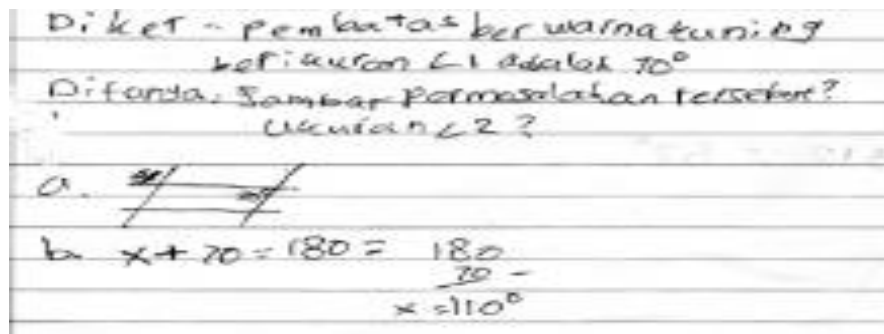 Diket - Pembatas berwarna kuning
berukuran ∠1 adalah 70°
Ditanya: Gambar Permasalahan tersebut?
Ukuran ∠2?
a.
b. x + 70 = 180 = 180
70 -
x = 110°